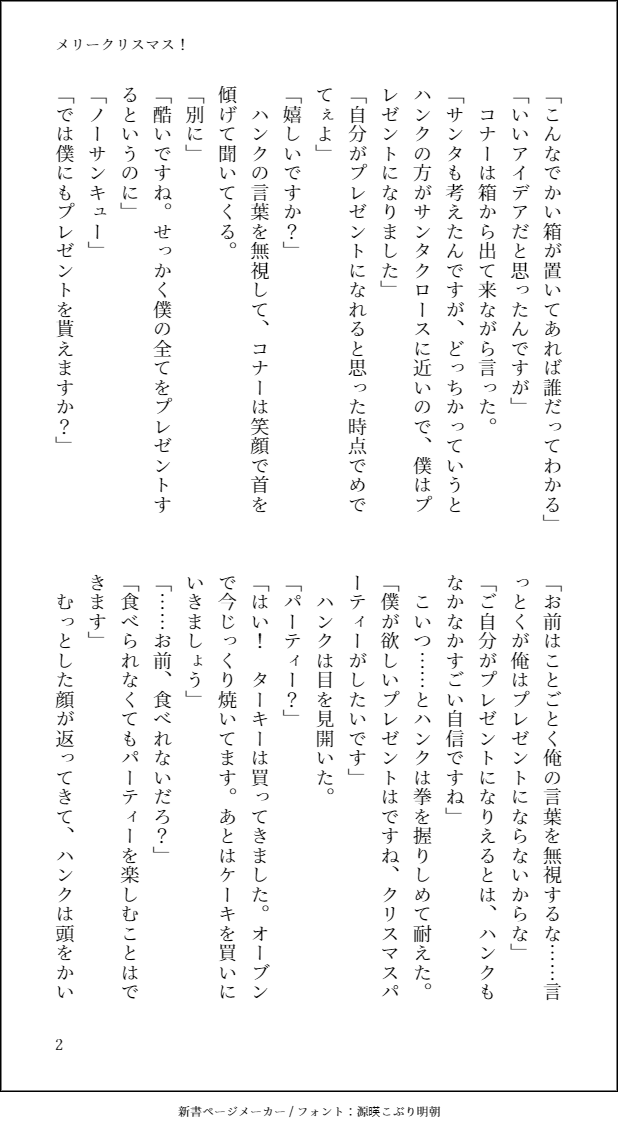 メリークリスマス！
「こんなでかい箱が置いてあれば誰だってわかる」
「いいアイデアだと思ったんですが」
　コナーは箱から出て来ながら言った。
「サンタも考えたんですが、どっちかっていうと
ハンクの方がサンタクロースに近いので、僕はプ
レゼントになりました」
「自分がプレゼントになれると思った時点でめで
てぇよ」
「嬉しいですか？」
　ハンクの言葉を無視して、コナーは笑顔で首を
傾げて聞いてくる。
「別に」
「酷いですね。せっかく僕の全てをプレゼントす
るというのに」
「ノーサンキュー」
「では僕にもプレゼントを貰えますか？」
「お前はことごとく俺の言葉を無視するな……言
っとくが俺はプレゼントにならないからな」
「ご自分がプレゼントになりえるとは、ハンクも
なかなかすごい自信ですね」
　こいつ……とハンクは拳を握りしめて耐えた。
「僕が欲しいプレゼントはですね、クリスマスパ
ーティーがしたいです」
　ハンクは目を見開いた。
「パーティー？」
「はい！　ターキーは買ってきました。オーブン
で今じっくり焼いてます。あとはケーキを買いに
いきましょう」
「……お前、食べれないだろ？」
「食べられなくてもパーティーを楽しむことはで
きます」
　むっとした顔が返ってきて、ハンクは頭をかい
2
新書ページメーカー / フォント：源暎こぶり明朝